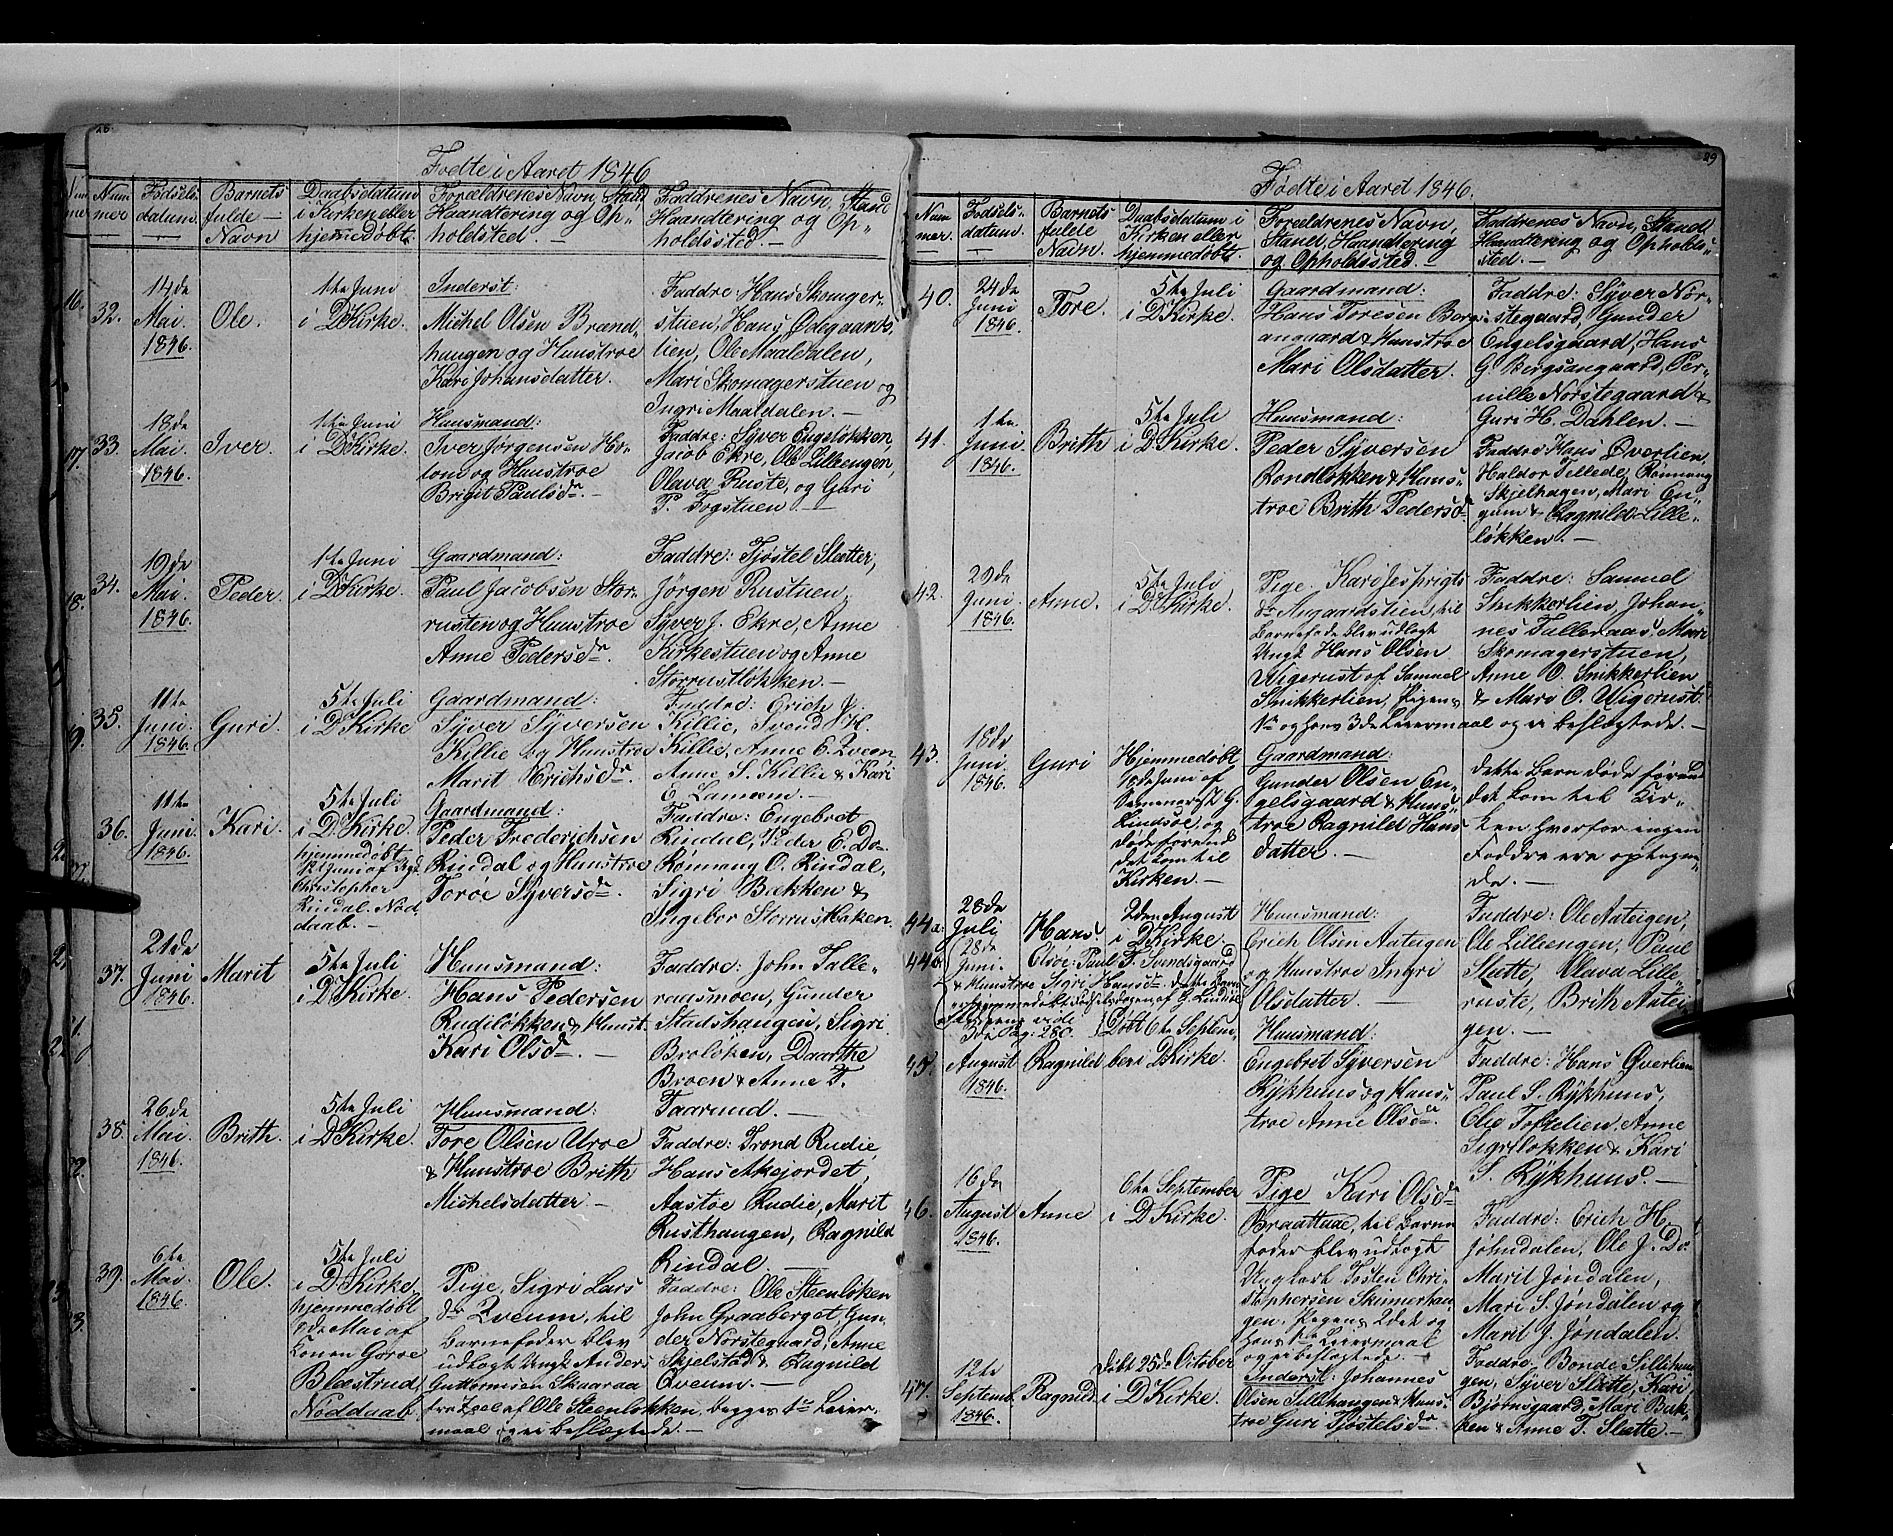 28
Fødte i Aaret 1846
Num mer
Fødsels-datum.
Barnets fulde Navn
Daabsdatum i Kirken eller hjemmedøbt.
Forældrenes Navn, Stand Haandtering og Opholdsted.
Faddrenes Navn, Stand Haandtering og Opholdssted.
32. 14de Mai. 1846. Ole. 1te Juni i D Kirke.
Inderst:
Michel Olsen Brænd-
haugen og Hustroe
Kari Johansdatter.
Faddre: Hans Skomger-
stuen, Hans Ødegaards-
lien, Ole Maaldalen,
Mari Skomagerstuen og
Ingri Maaldalen.
33. 18de Mai. 1846. Iver. 1te Juni i D Kirke.
Huusmand:
Iver Jørgensen Ho-
tom og Hustroe
Brigit Paulsdr.
Faddre: Syver Engeløkken,
Jacob Ekre, Ole Lilleengen,
Olava Ruste, og Guri
P. Fogstuen
34. 19de Mai. 1846. Peder. 1te Juni i D Kirke.
Gaardmand:
Paul Jacobsen Stor-
rusten og Hustroe
Anne Pedersdr.
Faddre: Tjøstel Slætter,
Jørgen Rustuen,
Syver J. Ekre, Anne
Kirkestuen og Anne
Storrustløkken.
35. 11te Juni 1846. Guri. 5te Juli i D Kirke
Gaardmand:
Syver Syversen
Killie og Hustroe
Marit Erichsdr.
Faddre: Erich J.
Killie, Svend H.
Killie, Anne E. Qveem
Anne S. Killie & Kari
E. Lamæm.
36. 11te Juni 1846. Kari. 5te Juli i D. Kirke
hjemmedøbt
12 Juni af Ungk.
Christopher
Rindal. Nød-
daab.
Gaardmand:
Peder Frederichsen
Rindal og Hustroe
Toroe Syversdr.
Faddre: Engebret
Rindal, Peder E. Do
Rønnaug O. Rindal,
Sigri Bækken &
Ingebor Storrustløken.
37. 21de Juni 1846. Marit 5te Juli i D Kirke.
Huusmand:
Hans Pedersen
Rudiløkken & Hust.
Kari Olsdr.
Faddre: John Talle-
raasmoen, Gunder
Stadshaugen, Sigri
Broløken, Daarthe
Broen & Anne T.
Taarund.
38. 26de Mai. 1846. Brith. 5te Juli i D Kirke.
Huusmand:
Tore Olsen Uroe
& Hustroe Brith
Michelsdatter
Faddre: Trond Rudie,
Hans Akejordet,
Aastøe Rudie, Marit
Rusthaugen, Ragnild
Rindal.
39. 6te Mai. 1846. Ole. 5te Juli i D Kirke,
hjemmedøbt
8de Mai af
Konen Goroe
Blæstrud,
Nøddaab.
Pige, Sigri Lars
dr Qveum, til
Barnefader blev
udlagt Ungk Anders
Guttormsen Skaaraa
tro Spaa af Ole Steenløkken, begges 1te Leier,
maal og ei beslægtede.
Faddre: Ole Steenløken
John Graaberget, Gun-
der Norstegaard, Anne
Skjelstad & Ragnild
Qveum.
29
Fødte i Aaret 1846.
Num mer.
Fødsels-datum.
Barnets fulde Navn.
Daabsdatum i Kirken eller hjemmedøbt.
Forældrenes Navn, Stand, Haandtering og Opholdssted.
Faddrenes Navn, Stand Haandtering og Opholdssted.
40. 24de Juni 1846. Tore. 5te Juli i D Kirke.
Gaardmand:
Hans Toresen Bergs-
angaard & Hustroe
Mari Olsdatter.
Faddre: Syver Nor-
stegaard, Gunder
Engelsgaard, Hans
G Bergsangaard, Per-
nille Norstegaard &
Guri H. Dahlen.
41. 1te Juni 1846. Brith 5te Juli i D Kirke.
Huusmand:
Peder Syversen
Rondløkken & Hus-
troe Brith Pedersdr
Faddre Hans Øverlien,
Haldor Tellede, Rønnaug
Skjelhagen, Mari En-
gum & Ragnild Lille-
løkken.
42. 29de Juni 1846. Anne. 5te Juli i D Kirke.
Pige. Kari Jesprigts
dr Augaardslien til
Barnefade blev udlagt
Ungk Hans Olsen
Wigerust af Samuel
Snikkerlien, Pigens
1te og hans 3de Leiermaal og ei beslægtede.
Faddre: Samuel
Snikkerlien, Johan-
nes Talleraas, Mari
Skomagerstuen,
Anne O. Snikkerlien
& Mari O. Wigerust.
43. 18de Juni 1846. Guri
Hjemmedøbt
18de Juni af
G.
Lindsøe, og
døde førend
det kom til
Kirken.
Gaardmand:
Gunder Olsen En-
gelsgaard & Hus-
troe Ragnild Hans
datter.
dette Barn døde førend
det kom til Kir-
ken hvorfor ingen
Faddre ere optegne-
de.
44a. 28de Juli Hans. 2den August i D Kirke.
Huusmand:
Erich Olsen Aateigen
og Hustroe Ingri
Olsdatter.
Faddre: Ole Aateigen,
Ole Lilleengen, Paul
Slette, Olava Lille-
ruste, Brith Aatei-
gen.
44b. 28de Juni. Olive: Paul T. Svendsgaard
& Hustroe Sigri Hansdr. dette Barn
er hjemmedøbt af G. Lindsøe
vide
Pag: 280.
45. August 1846. Ragnild Døbt 6te Septem-
ber i D Kirke.
Huusmand:
Engebret Syversen
Rykhuus og Hus-
troe Anne Olsdr.
Faddre: Hans Øverlien
Paul S. Rykhuus,
Ole Toftelien, Anne
Sigrtløkken & Kari
S. Rykhuus.
46. 16de August 1846. Anne 6te September i D Kirke.
Pige Kari Olsdr
Braattaae, til Barne
fader blev udlagt
Ungkarl Tosten Chri-
stophersen Skinnerhau
gen, Pigens 2det og
hans 1te Leiermaal
og ei beslægtede.
Faddre: Erich H.
Jøhndalen, Ole J. Do
Marit Jøndalen,
Mari S. Jøndalen og
Marit J. Jøndalen.
47. 12te Septemb. 1846. Ragnild. døbt 25de October i D Kirke.
Inderst: Johannes
Olsen Sillihaugen & Hus-
troe Guri Tjøstelsdr
Faddre, Bonde Sillihau
gen, Syver Slette, Kari
Bjørnsgaard, Mari Bæk-
ken & Anne T. Slette.